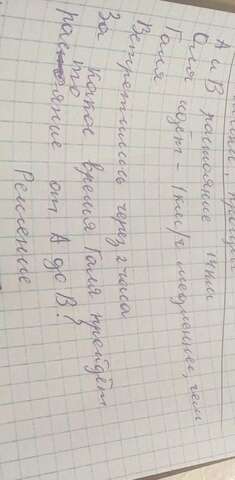 А и В растояние пути
Оля идёт - 1 км/ч медленнее, чем
Галя
Встретились через 2 часа
За какое время Галя пройдёт
то
растояние от А до В?
Решение